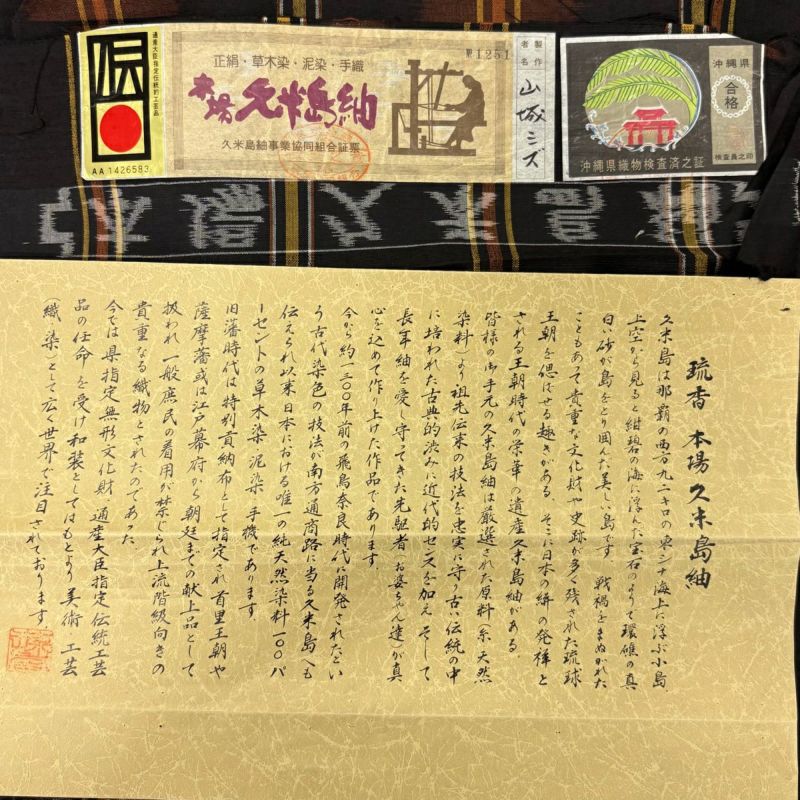 伝
通産大臣指定伝統的工芸品
AA1426583
正絹・草木染・泥染・手織
№1251
本場久米島紬
久米島紬事業協同組合証票
製作者名
山城ミズ
沖縄県
合格
検査員之印
沖縄県織物検査済之証
琉香 本場久米島紬
久米島は那覇の西方九二キロの東シナ海上に浮ぶ小島
上空から見ると紺碧の海に浮んだ宝石のようで環礁の真
白い砂が島をとり囲んだ美しい島です 戦禍をまぬがれた
こともあって貴重な文化財や史跡が多く残された琉球
王朝を偲ばせる趣きがある そこに日本の絣の発祥と
される王朝時代の栄華の遺産久米島紬がある。
皆様の御手元の久米島紬は厳選された原料(糸、天然
染料)より祖先伝来の技法を忠実に守り古い伝統の中
に培われた古典的渋みに近代的センスを加え そして
長年紬を愛し守ってきた先駆者(お婆ちゃん達)が真
心を込めて作り上げた作品であります。
今から約一三〇〇年前の飛鳥奈良時代に開発されたとい
う古代染色の技法が南方通商路に当る久米島へも
伝えられ以来日本における唯一の純天然染料一〇〇パ
ーセントの草木染 泥染 手機であります。
旧藩時代は特別貢納布として指定され首里王朝や
薩摩藩或は江戸幕府から朝廷までの献上品として
扱われ 一般庶民の着用が禁じられ上流階級向きの
貴重なる織物とされたのであった
今では県指定無形文化財、通産大臣指定伝統工芸
品の任命を受け和装としてはもとより美術 工芸
(織染)として広く世界で注目されております。